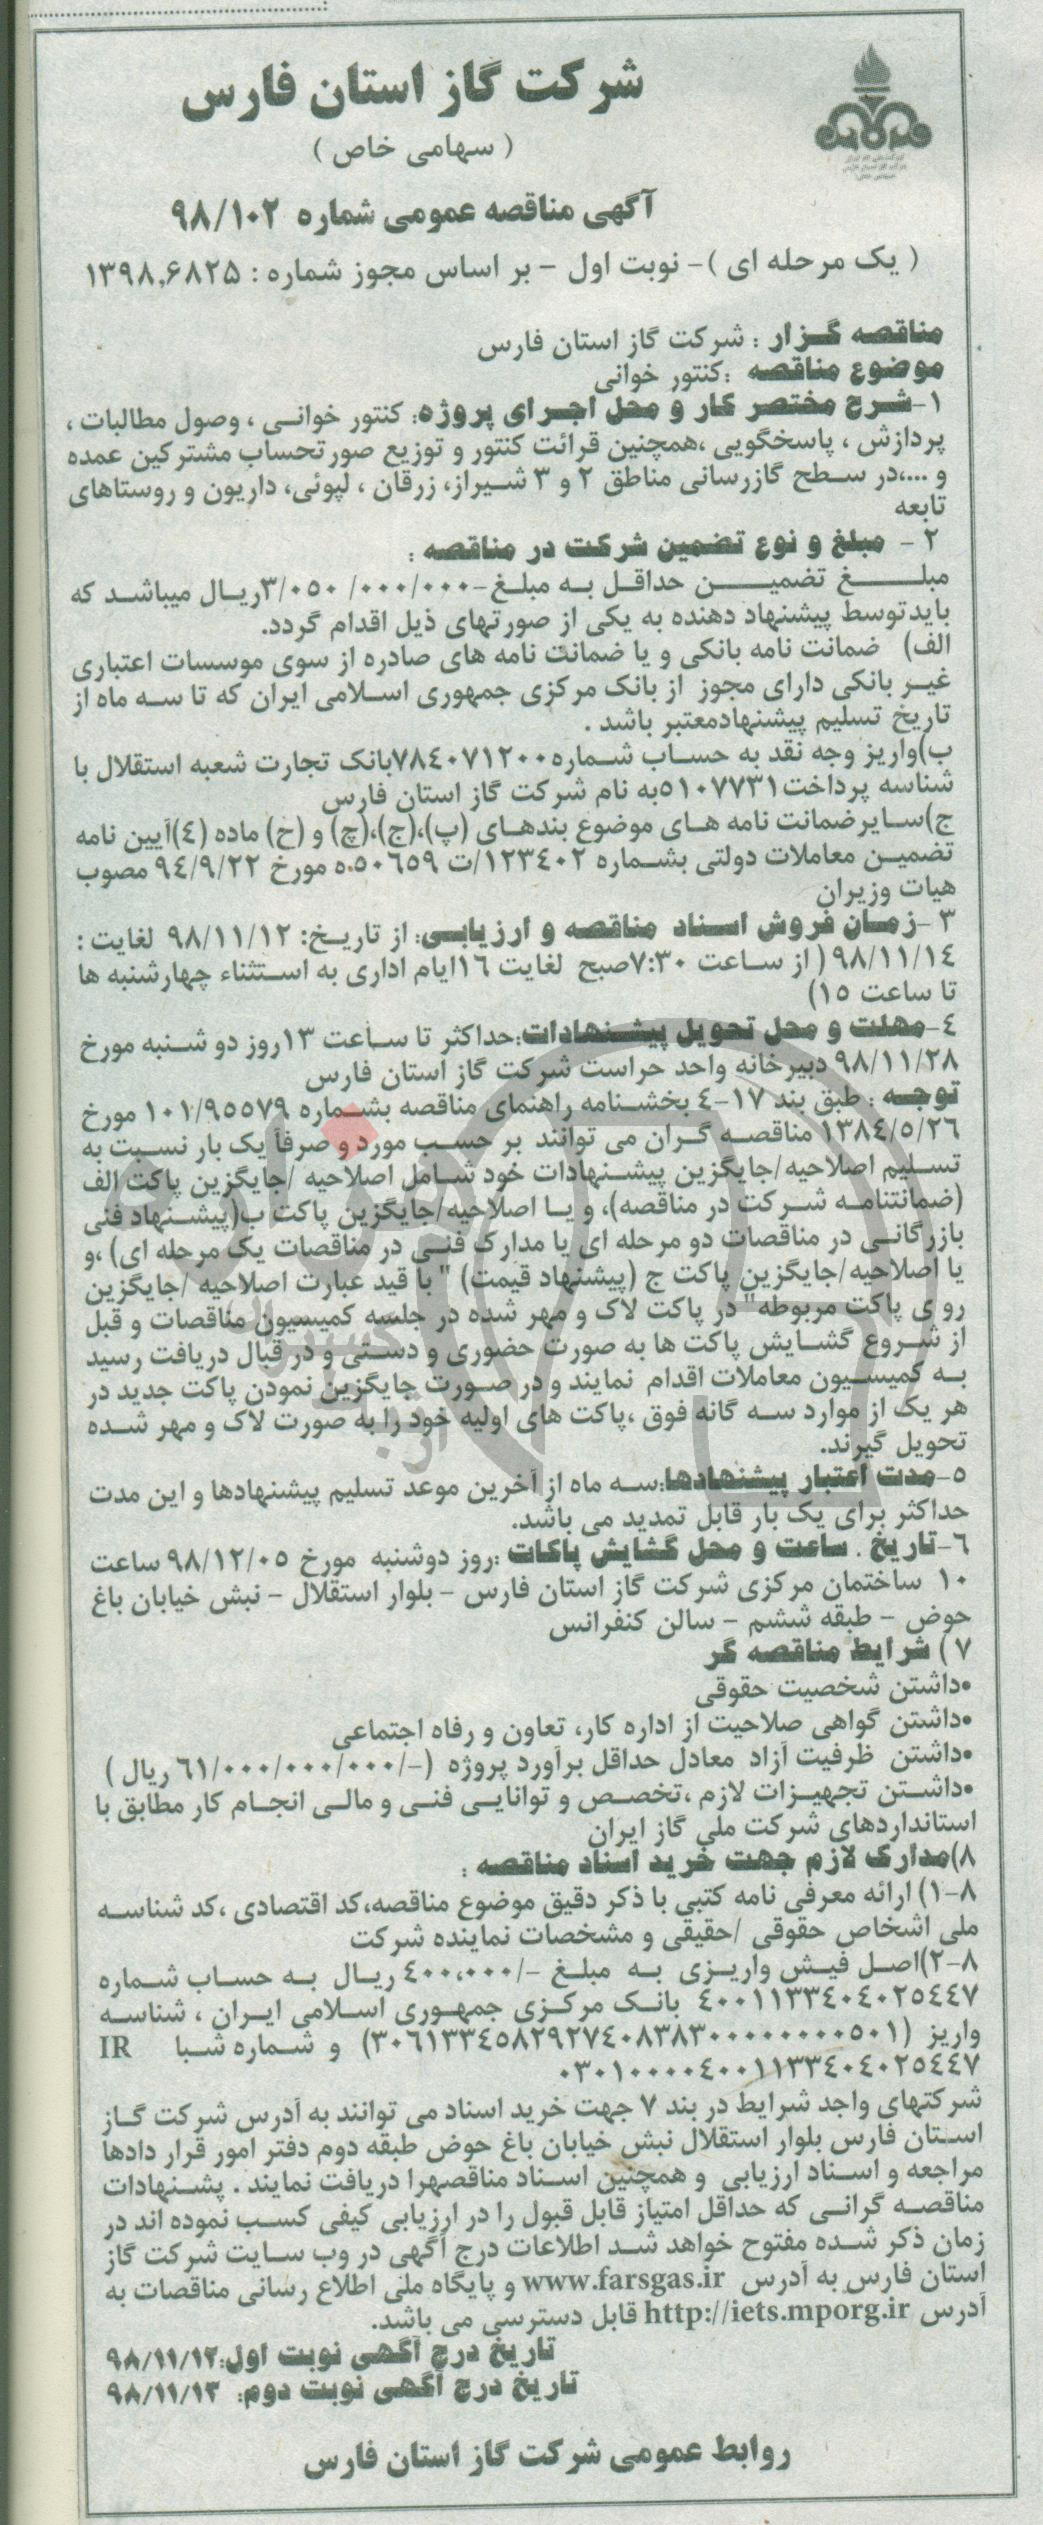 شرکت گاز استان فارس
( سهامی خاص )
آگهی مناقصه عمومی شماره ۹۸/۱۰۲
( یک مرحله ای )- نوبت اول - بر اساس مجوز شماره : ۱۳۹۸,۶۸۲۵
مناقصه گـزار : شرکت گاز استان فارس
موضوع مناقصه :کنتور خوانی
۱-شرح مختصر کار و محل اجرای پروژه: کنتور خوانی ، وصول مطالبات ،
پردازش ، پاسخگویی ،همچنین قرائت کنتور و توزیع صورتحساب مشترکین عمده
و ...،در سطح گازرسانی مناطق ۲ و ۳ شیراز، زرقان ، لپوئی، داریون و روستاهای
تابعه
۲- مبلغ و نوع تضمین شرکت در مناقصه :
مبلغ تضمین حداقل به مبلغ-۳/۰۵۰ /۰۰۰/۰۰۰ریال میباشد که
بایدتوسط پیشنهاد دهنده به یکی از صورتهای ذیل اقدام گردد.
الف) ضمانت نامه بانکی و یا ضمانت نامه های صادره از سوی موسسات اعتباری
غیر بانکی دارای مجوز از بانک مرکزی جمهوری اسلامی ایران که تا سه ماه از
تاریخ تسلیم پیشنهادمعتبر باشد .
ب)واریز وجه نقد به حساب شماره۷۸۴۰۷۱۲۰۰بانک تجارت شعبه استقلال با
شناسه پرداخت۵۱۰۷۷۳۱به نام شرکت گاز استان فارس
ج)سایرضمانت نامه های موضوع بندهای (پ)،(ج)،(چ) و (ح) ماده (۴)آیین نامه
تضمین معاملات دولتی بشماره ۱۲۳۴۰۲/ت ۵۰۶۵۹،ه مورخ ۹۴/۹/۲۲ مصوب
هیات وزیران
۳-زمان فروش اسناد مناقصه و ارزیابی: از تاریخ: ۹۸/۱۱/۱۲ لغایت :
۹۸/۱۱/۱۴ ( از ساعت ۷:۳۰صبح لغایت ۱۶ایام اداری به استثناء چهارشنبه ها
تا ساعت ۱۵)
۴-مهلت و محل تحویل پیشنهادات:حداکثر تا ساعت ۱۳روز دو شنبه مورخ
۹۸/۱۱/۲۸ دبیرخانه واحد حراست شرکت گاز استان فارس
توجه : طبق بند ۱۷-۴ بخشنامه راهنمای مناقصه بشماره ۱۰۱/۹۵۵۷۹ مورخ
۱۳۸۴/۵/۲۶ مناقصه گران می توانند بر حسب مورد و صرفاً یک بار نسبت به
تسلیم اصلاحیه/جایگزین پیشنهادات خود شامل اصلاحیه /جایگزین پاکت الف
(ضمانتنامه شرکت در مناقصه)، و یا اصلاحیه/جایگزین پاکت ب(پیشنهاد فنی
بازرگانی در مناقصات دو مرحله ای یا مدارک فنی در مناقصات یک مرحله ای) ،و
یا اصلاحیه/جایگزین پاکت ج (پیشنهاد قیمت) " با قید عبارت اصلاحیه /جایگزین
رو ی پاکت مربوطه" در پاکت لاک و مهر شده در جلسه کمیسیون مناقصات و قبل
از شروع گشایش پاکت ها به صورت حضوری و دستی و در قبال دریافت رسید
به کمیسیون معاملات اقدام نمایند و در صورت جایگزین نمودن پاکت جدید در
هر یک از موارد سه گانه فوق ،پاکت های اولیه خود را به صورت لاک و مهر شده
تحویل گیرند.
۵-مدت اعتبار پیشنهادها:سه ماه از آخرین موعد تسلیم پیشنهادها و این مدت
حداکثر برای یک بار قابل تمدید می باشد.
۶-تاریخ . ساعت و محل گشایش پاکات :روز دوشنبه مورخ ۹۸/۱۲/۰۵ ساعت
۱۰ ساختمان مرکزی شرکت گاز استان فارس - بلوار استقلال - نبش خیابان باغ
حوض - طبقه ششم - سالن کنفرانس
۷) شرایط مناقصه گر
•داشتن شخصیت حقوقی
•داشتن گواهی صلاحیت از اداره کار، تعاون و رفاه اجتماعی
•داشتن ظرفیت آزاد معادل حداقل برآورد پروژه (-/۶۱/۰۰۰/۰۰۰/۰۰۰ ریال )
•داشتن تجهیزات لازم ،تخصص و توانایی فنی و مالی انجام کار مطابق با
استانداردهای شرکت ملی گاز ایران
۸)مدارک لازم جهت خرید اسناد مناقصه :
۸-۱) ارائه معرفی نامه کتبی با ذکر دقیق موضوع مناقصه،کد اقتصادی ،کد شناسه
ملی اشخاص حقوقی /حقیقی و مشخصات نماینده شرکت
۸-۲)اصل فیش واریزی به مبلغ -/۴۰۰،۰۰۰ ریال به حساب شماره
۴۰۰۱۱۳۳۴۰۴۰۲۵۴۴۷ بانک مرکزی جمهوری اسلامی ایران ، شناسه
واریز (۳۰۶۱۳۳۴۵۸۲۹۲۷۴۰۸۳۸۳۰۰۰۰۰۰۰۰۰۵۰۱) و شماره شبا IR
۰۳۰۱۰۰۰۰۴۰۰۱۱۳۳۴۰۴۰۲۵۴۴۷
شرکتهای واجد شرایط در بند ۷ جهت خرید اسناد می توانند به آدرس شرکت گاز
استان فارس بلوار استقلال نبش خیابان باغ حوض طبقه دوم دفتر امور قرار دادها
مراجعه و اسناد ارزیابی و همچنین اسناد مناقصهرا دریافت نمایند . پشنهادات
مناقصه گرانی که حداقل امتیاز قابل قبول را در ارزیابی کیفی کسب نموده اند در
زمان ذکر شده مفتوح خواهد شد اطلاعات درج آگهی در وب سایت شرکت گاز
استان فارس به آدرس www.farsgas.ir و پایگاه ملی اطلاع رسانی مناقصات به
آدرس http://iets.mporg.ir قابل دسترسی می باشد.
تاریخ درج آگهی نوبت اول:۹۸/۱۱/۱۲
تاریخ درج آگهی نوبت دوم: ۹۸/۱۱/۱۳
روابط عمومی شرکت گاز استان فارس